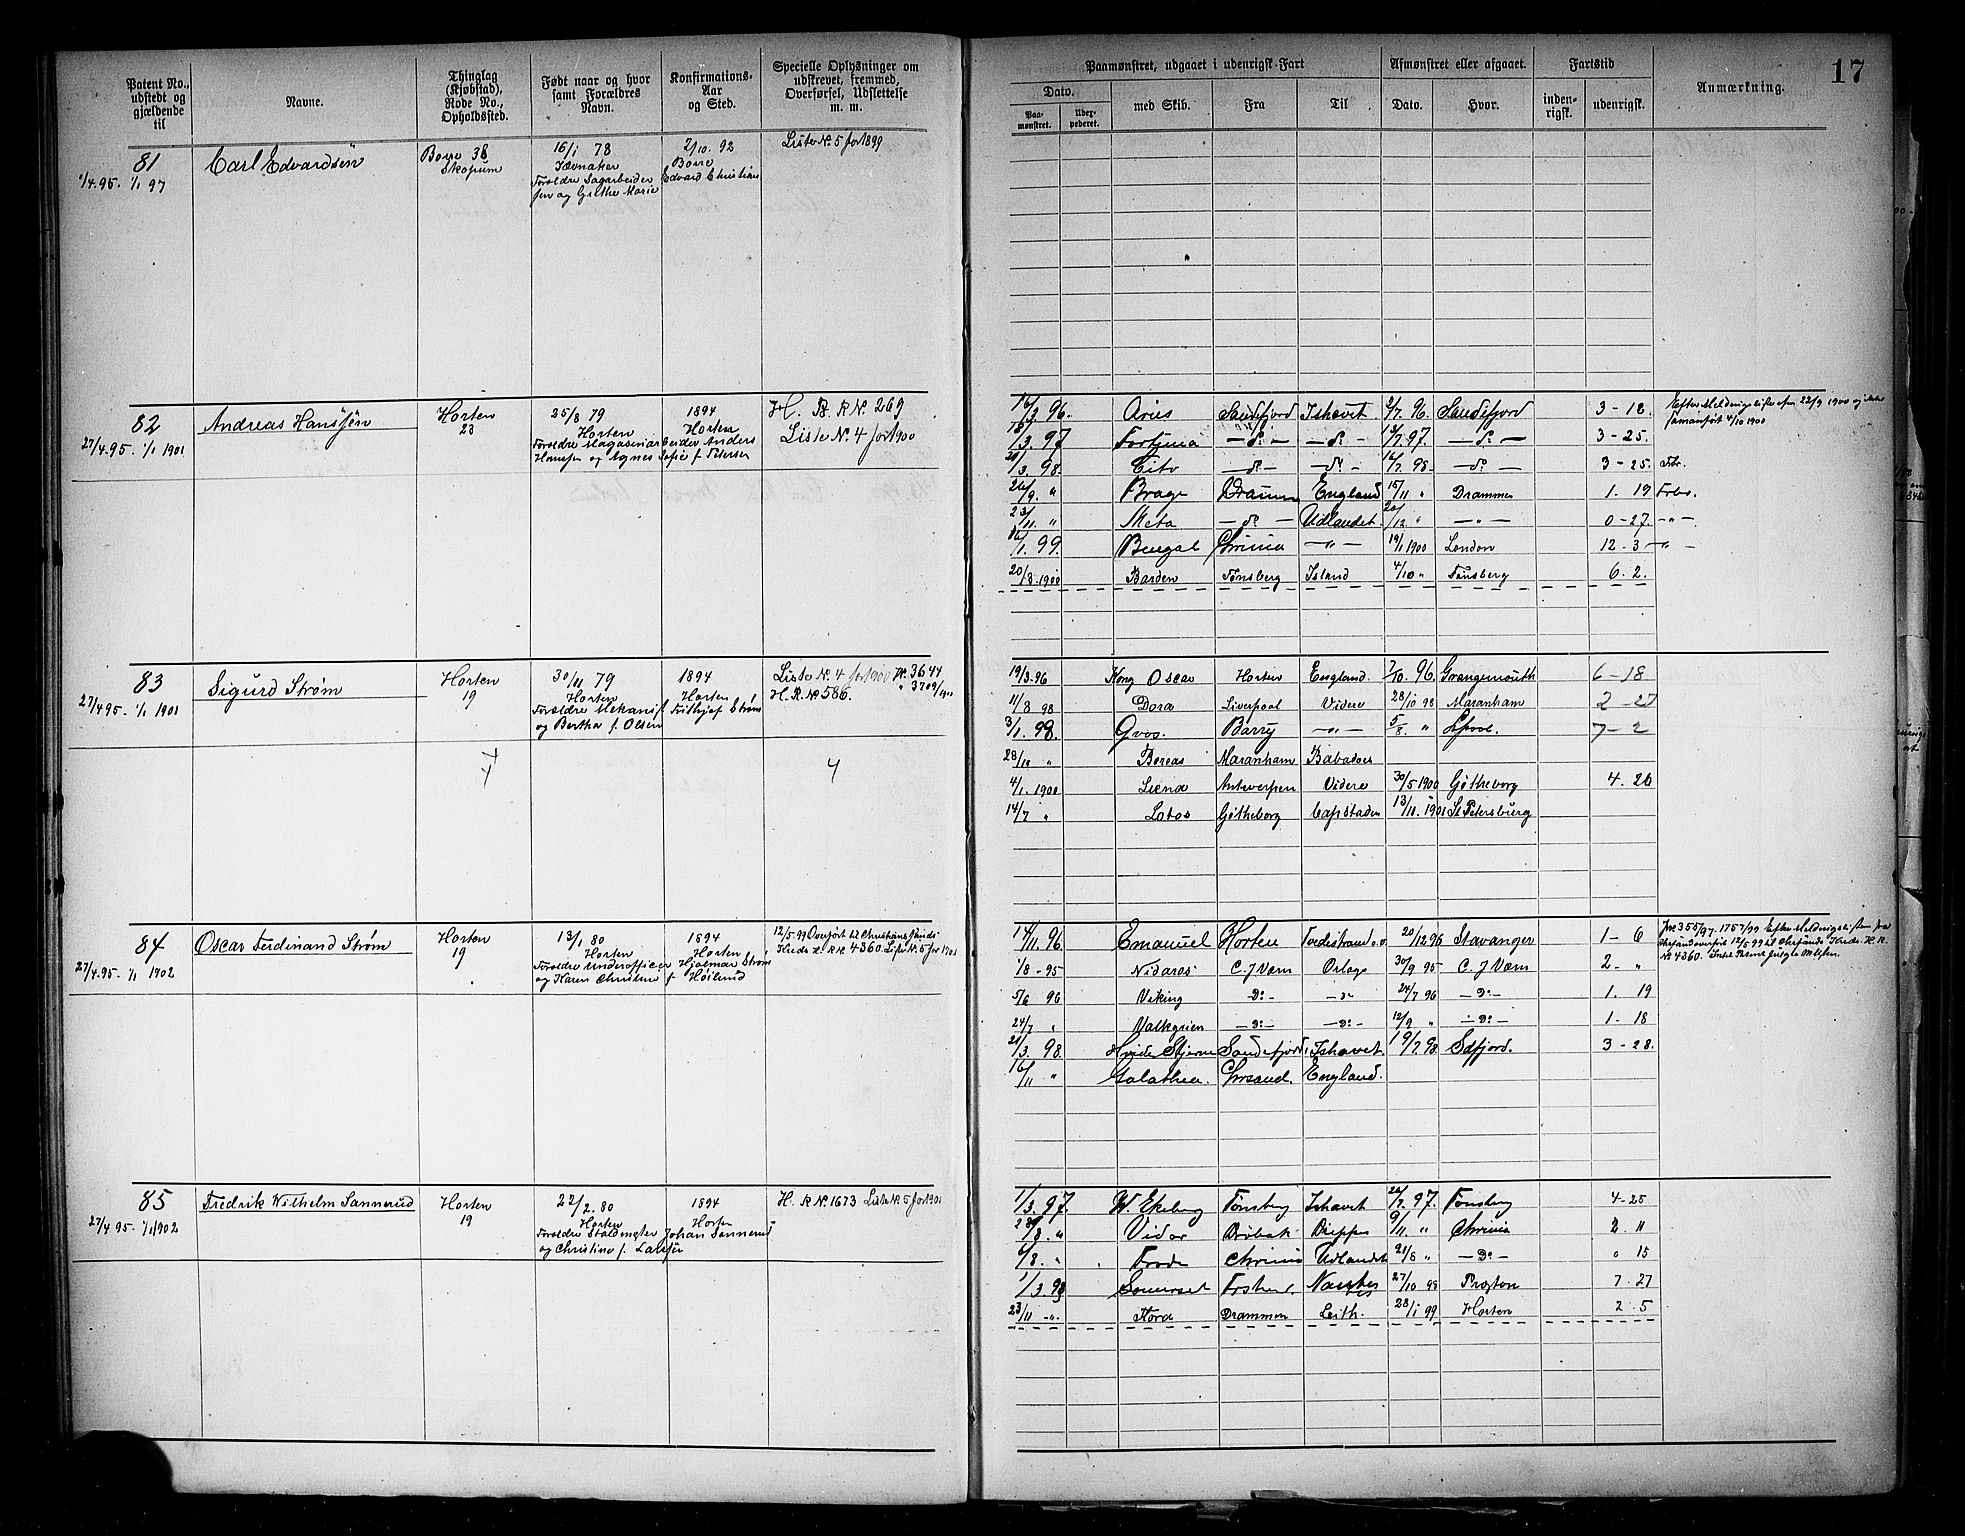 17
Patent No., udstedt og gjældende til
Navne.
Thinglag (Kjøbstad), Rode No., Opholdssted.
Født naar og hvor samt Forældres Navn.
Konfirmations-Aar og Sted.
Specielle Oplysninger om udskrevet, fremmed, Overførsel, Udslettelse m. m.
Paamønstret, udgaaet i udenrigsk Fart
Afmønstret eller afgaaet.
Fartstid
Anmærkning.
Dato.
med Skib.
Fra
Til
Dato.
Hvor.
inden-rigsk.
udenrigsk.
Paa-mønstret.
81
1/4.95. 1/1 97
Carl Edvardsen
Borre 38
Skopum
16/1 78
Jævnaker
Forældre Sagarbeider Edvard Christian
sen og Grethe Marie
2/10. 92
Borre
Liste No. 5 for 1899
82
27/4.95. 1/1 1901
Andreas Hanssen
Horten
23
25/8 79
Horten
Forældre Magasinarbeider Anders
Hanssen og Agnes Sofie f. Petersen
1894
Horten
H. B. R No. 269
Liste No. 4 for 1900
96. Aries Sandefjord Ishavet 2/7. 96. Sandefjord 3-18.
/3. 97 Fortuna —do— —do— /7 97. —do— 3-25.
/3. 98. Cito —do— —do— /7. 98. —do— 3-25. Fbr.
26/9. " Brage Drammen England 15/11 " Drammen 1. 19 Frbs.
23/11. " Meta —do— Udlandet. 20/12 " —"— 0-27. —"—
/1. 99. Bengal Chrania —"— 19/1 1900 London 12-3 —"—
20/3. 1900 Barden Tønsberg Island 4/10 " Tønsberg 6. 2.
83
27/4 95. 1/1 1901
Sigurd Strøm
Horten
19
30/11 79
Horten
Forældre Mekanist Frithjof Strøm
og Bertha f. Olsen
1894
Horten
Liste No. 4 for 1900 No. 3644
H. R. No 586. " 3709/1901
4
19/3.96 Kong Oscar Horten England. 7/10. 96. Grangemouth 6-18
11/8 98 Dora Liverpool Videre 28/10 98 Maranham 2-27
3/1. 98. Gvos. Barry —"— 5/8. " Lpool. 7-2
28/10 " Boreas Maranham Babadoes
4/1. 1900 Liena Antwerpen Videre 30/5 1900 Gøtheborg 4. 26
14/7 " Lotos Gøtheborg Capstaden 13/10. 1901 St Petersburg
84
27/4-95. 1/1 1902
Oscar Ferdinand Strøm
Horten
19
13/1 80
Horten
Forældre Underofficer Hjalmar Strøm
og Karen Christine f. Høilund
1894
Horten
12/5.99 Overført til Christianssands
Kreds L. R No. 4360. Liste No. 5 for 1901
14/11. 96 Emanuel Horten Tvedestrand o.v. 20/12 96 Stavanger 1-6
1/8-95 Nidaros C. J Værn Orlogs 30/9 95 C. J Værn 2-"
5/6 96 Viking —Do— —do— 24/7 96 —Do— 1. 19
24/7 " Valkyrien —Do— —Do— 12/9 " —Do— 1-18
/3. 98. Hvide Stjerne Sandefjord Ishavet. 19/7. 98 Sdfjord. 3-28.
16/11 " Galathea. Chrsand. England.
85
27/4 95. 1/1 1902
Fredrik Wilhelm Sannerud
Horten
19
22/2. 80
Horten
Forældre Staldmester Johan Sannerud
og Christine f. Larsen
1894
Horten
H. R No. 1673 Liste No. 5 for 1901
1/3. 97. W. Ekeberg Tønsberg Ishavet /7. 97. Tønsberg 4-25
" Vidar Drøbak Dieppe 9/11. " Chrania 2. 11
6/8. " Frode Chrania Udlandet 21/8 " —Do— " 15
1/3. 98 Somerset Nantes 27/10 98 Preston 7-27
23/11 —"— Flora Drammen Leith. 28/1 99 Horten 2. 5